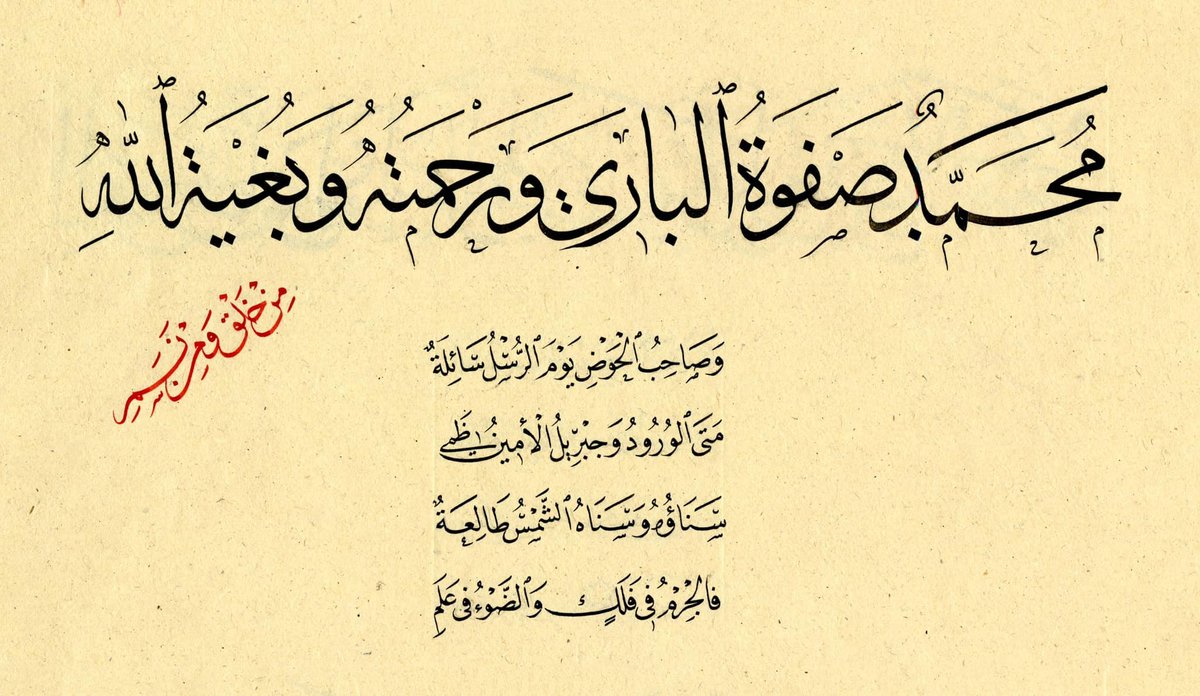 مُحَمَّدٌ صَفْوَةُ ٱلبارِي وَرَحْمَتُهُ وَبُغْيَةُ ٱللهِ
مِنْ خَلْقٍ وَمِنْ نَسَمِ
وَصَاحِبُ ٱلحَوْضِ يَوْمَ ٱلرُّسْلُ سَائِلَةٌ
مَتَى ٱلوُرُودُ وَجِبْرِيلُ الْأَمِينُ ظَمِي
سَنَاؤُهُ وَسَنَاهُ ٱلشَّمْسُ طَالِعَةٌ
فالجِرْمُ فِي فَلَكٍ وَٱلضَّوْءُ فِي عَلَمِ